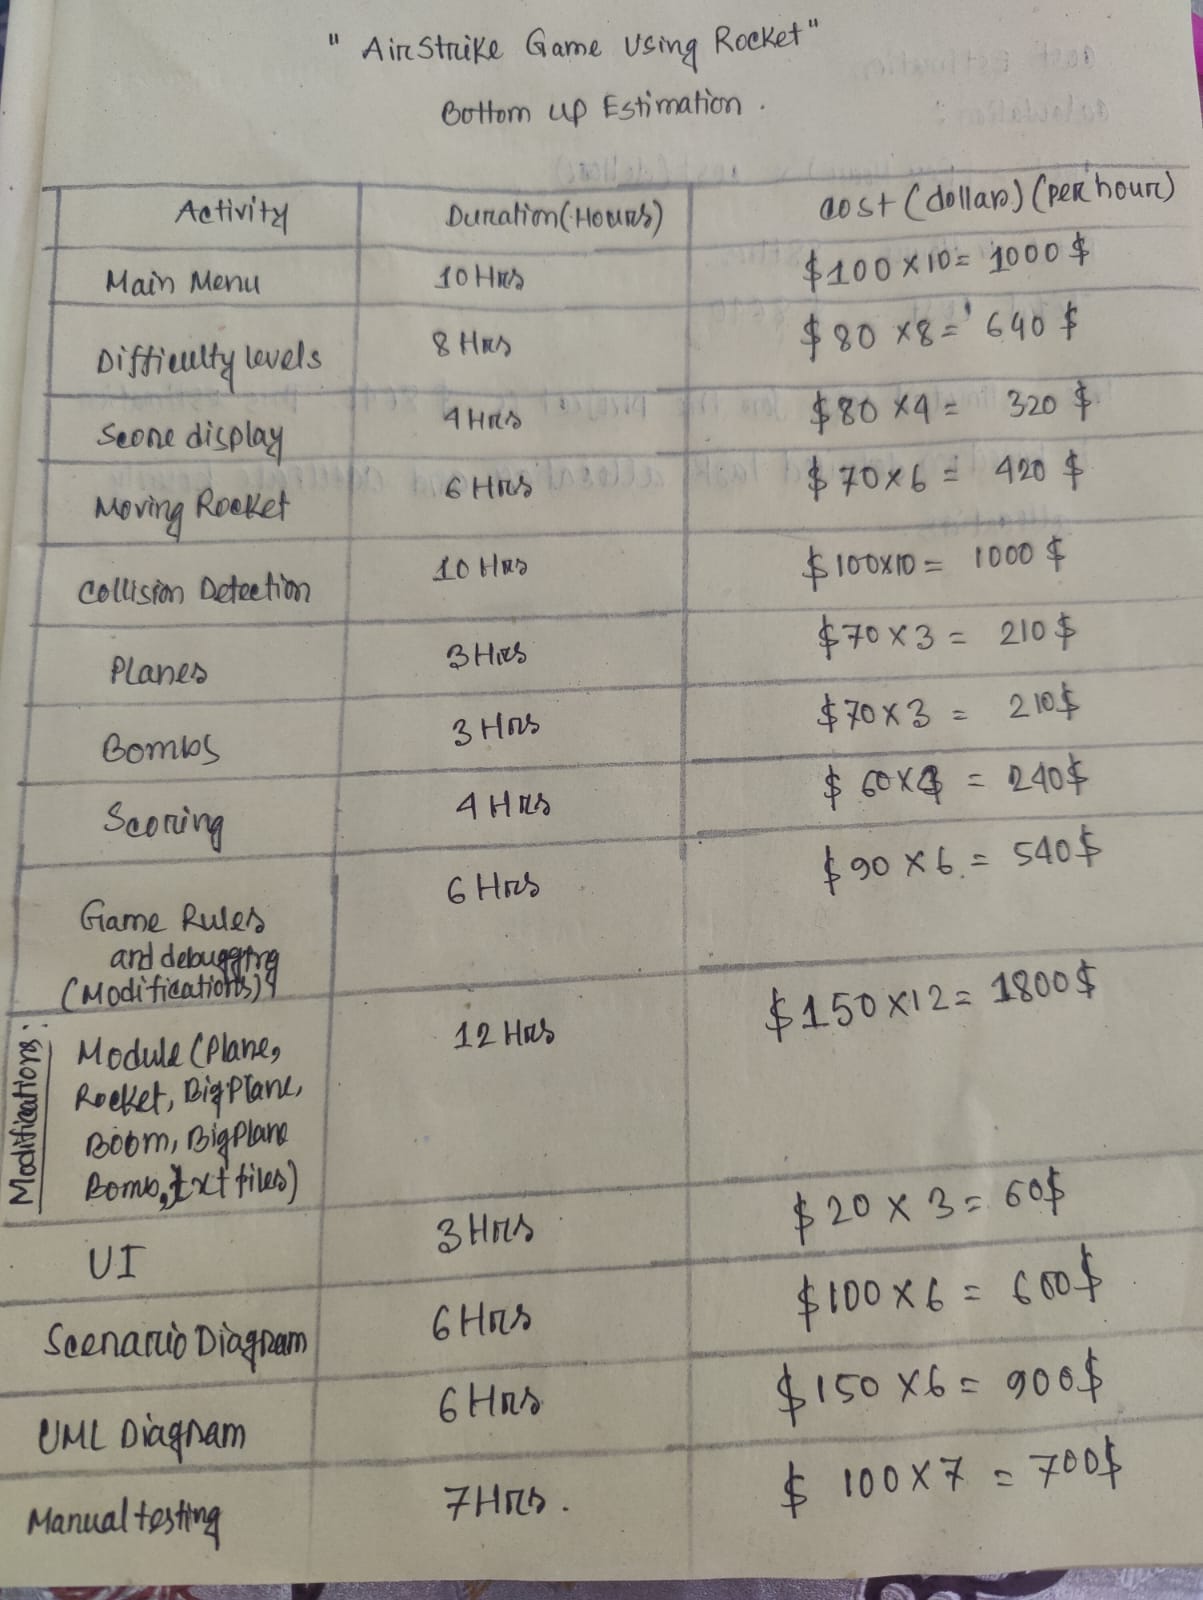 "AirStrike Game Using Rocket"
Bottom up Estimation.
Activity Duration(Hours) cost (dollars) (per hour)
Main Menu 10 Hrs $100 x 10 = 1000 $
Difficulty levels 8 Hrs $ 80 x 8 = 640 $
Score display 4 Hrs $ 80 x 4 = 320 $
Moving Rocket 6 Hrs $ 70 x 6 = 420 $
Collision Detection 10 Hrs $ 100x10 = 1000 $
Planes 3 Hrs $ 70 x 3 = 210 $
Bombs 3 Hrs $ 70 x 3 = 210 $
Scoring 4 Hrs $ 60 x 4 = 240 $
Game Rules 6 Hrs $ 90 x 6. = 540 $
and debugging
(Modifications)
Modifications:
Module (Plane, 12 Hrs $150 x 12 = 1800 $
Rocket, BigPlane,
Boom, Bigplane
Bomb, txt files)
UI 3 Hrs $ 20 x 3 = 60$
Scenario Diagram 6 Hrs $100 x 6 = 600 $
UML Diagram 6 Hrs $150 x 6 = 900 $
Manual testing 7 Hrs. $ 100 x 7 = 700 $